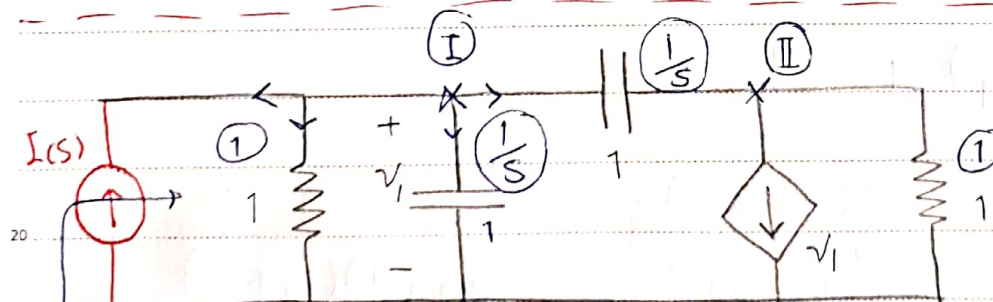 I
1/S
II
I(S)
1
+
1/S
1
1
V₁
1
1
20
1
V₁
−